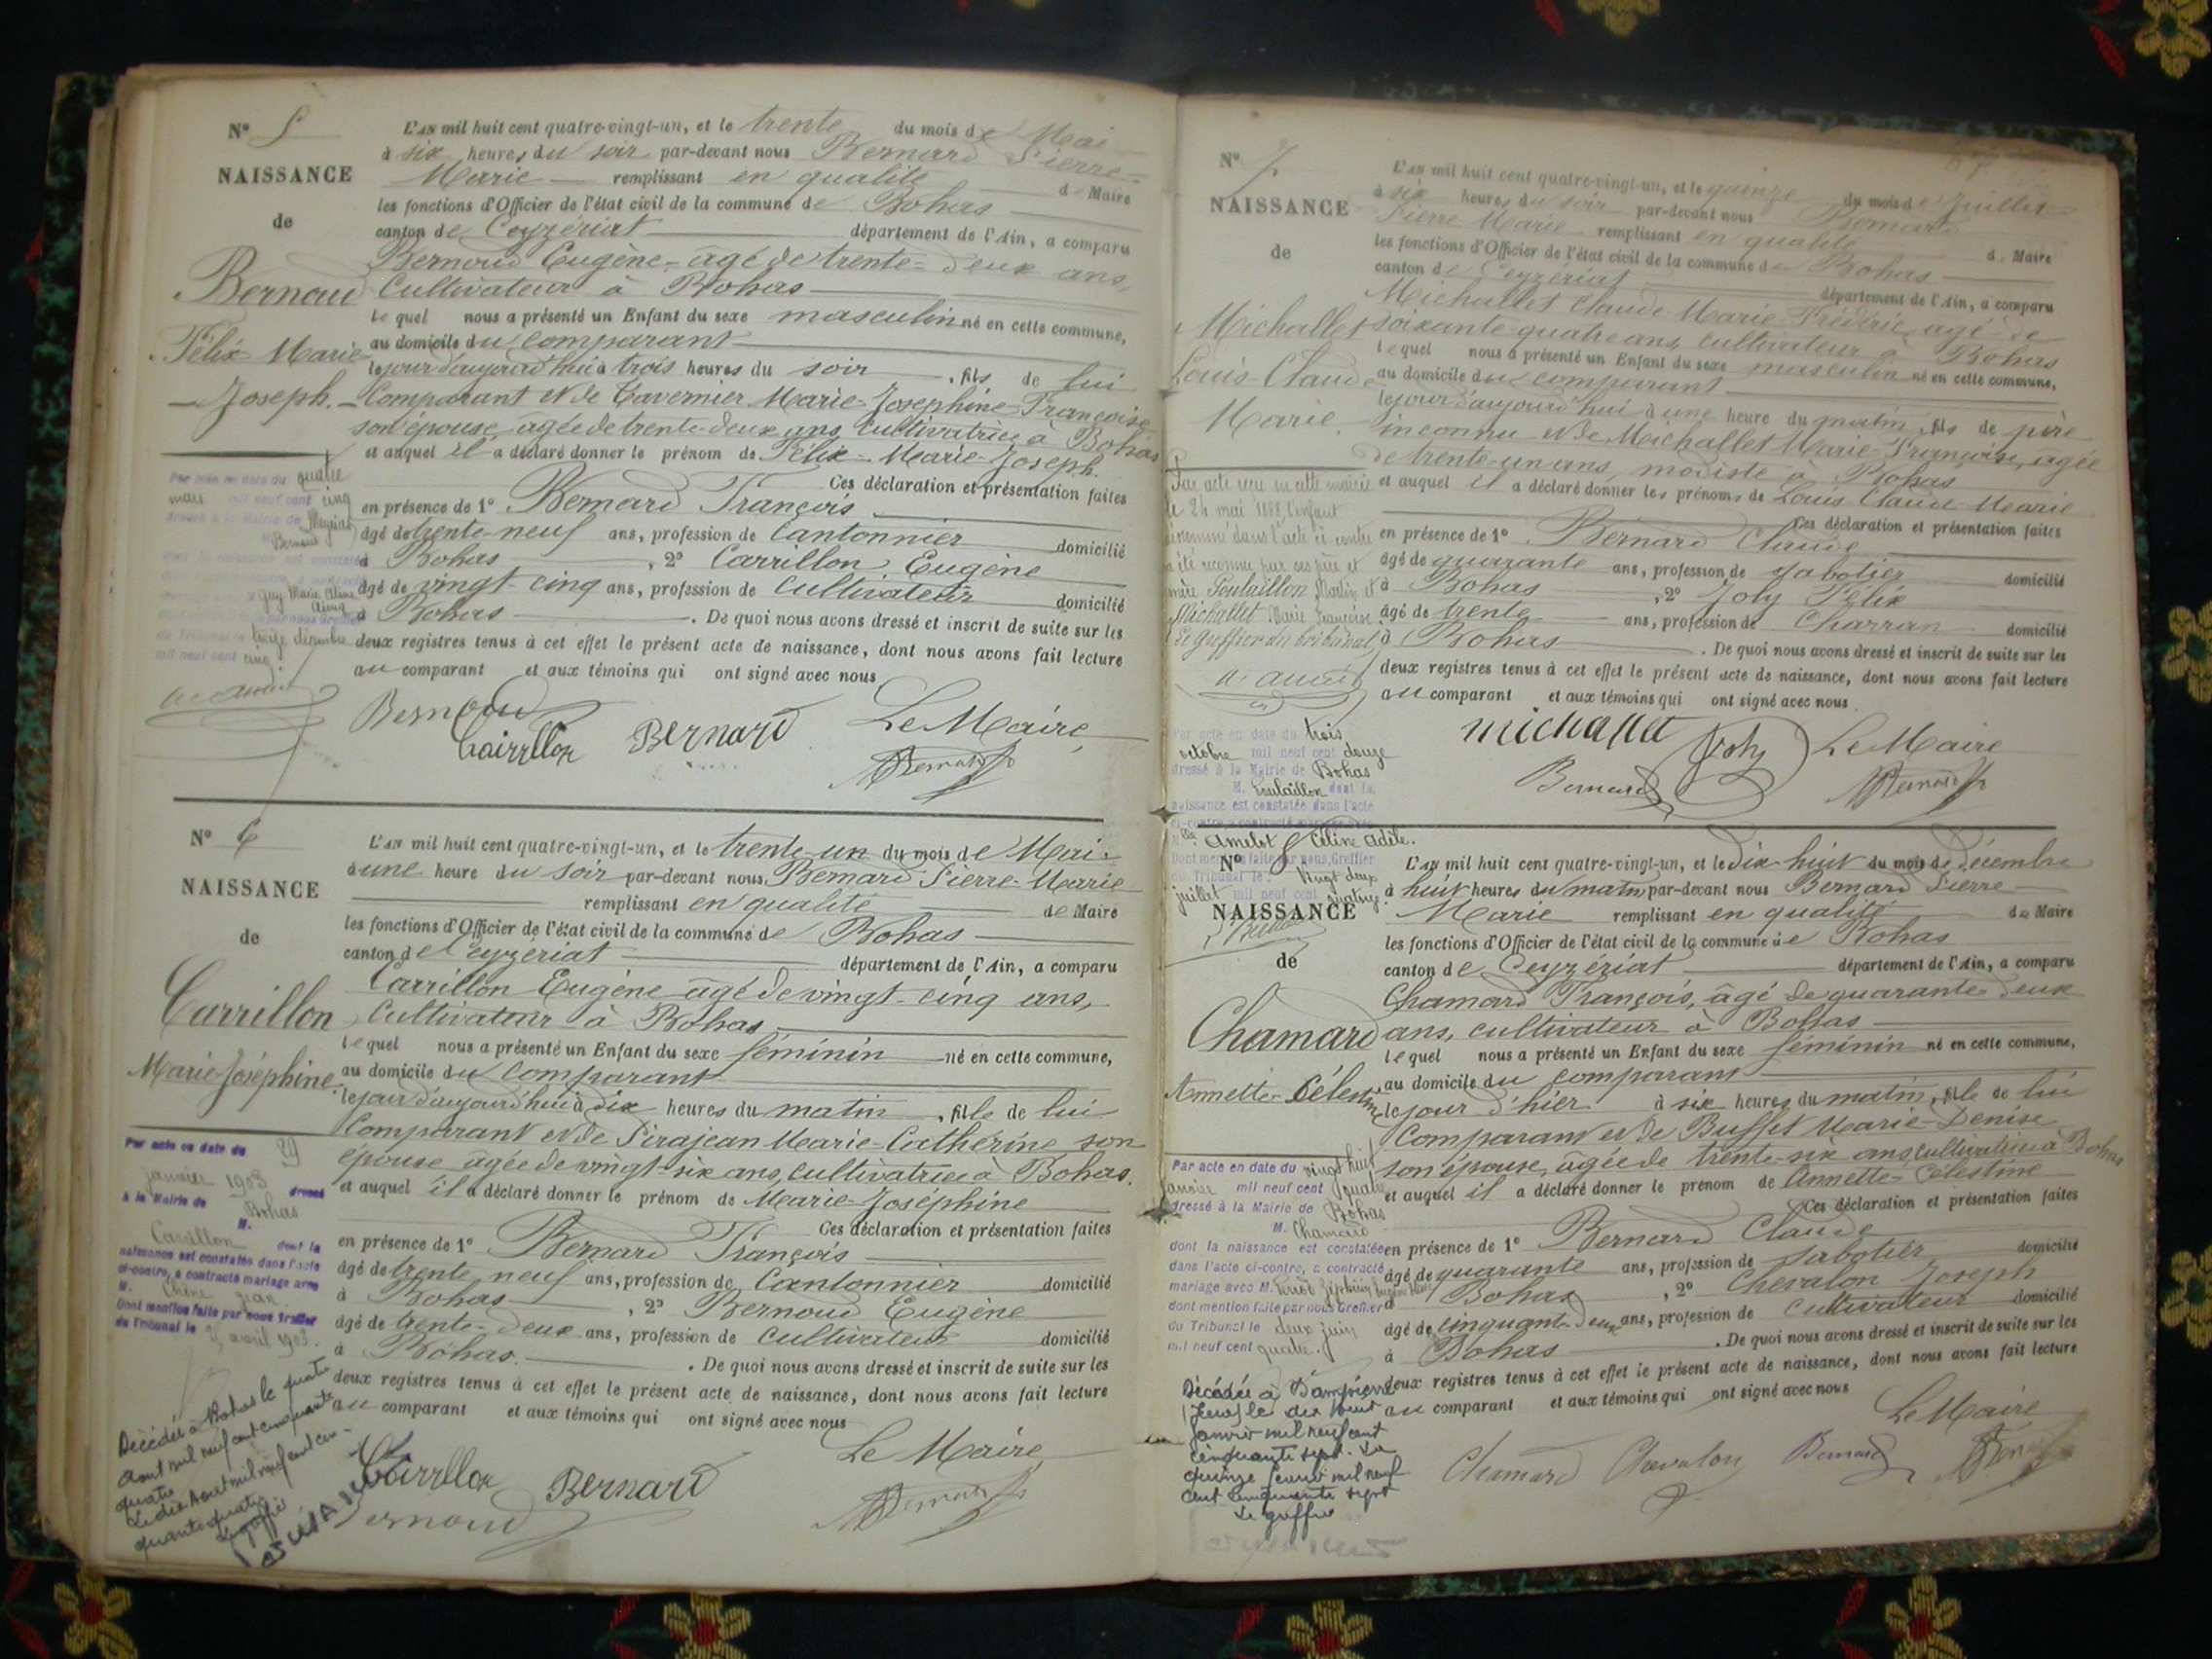 N° 5
NAISSANCE
de
Bernoud
Félix Marie
Joseph.
L'AN mil huit cent quatre-vingt-un, et le trente du mois de Mai
à six heures du soir par-devant nous Bernard Pierre-
Marie remplissant en qualité de Maire
les fonctions d'Officier de l'état civil de la commune de Bohas
canton de Ceyzériat département de l'Ain, a comparu
Bernoud Eugène âgé de trente-deux ans,
Cultivateur à Bohas
lequel nous a présenté un Enfant du sexe masculin né en cette commune,
au domicile du comparant
le jour d'aujourd'hui à trois heures du soir, fils de lui
Comparant et de Tavernier Marie-Josephine-Françoise
son épouse, âgée de trente-deux ans, Cultivatrice à Bohas
et auquel il a déclaré donner le prénom de Félix-Marie-Joseph.
Ces déclaration et présentation faites
en présence de 1° Bernard François
âgé de trente-neuf ans, profession de Cantonnier domicilié
à Bohas, 2° Carrillon Eugène
âgé de vingt-cinq ans, profession de Cultivateur domicilié
à Bohas. De quoi nous avons dressé et inscrit de suite sur les
deux registres tenus à cet effet le présent acte de naissance, dont nous avons fait lecture
au comparant et aux témoins qui ont signé avec nous
Par acte en date du quatre
mars mil neuf cent cinq
dressé à la Mairie de
Bernoud
Guy Marie Aline
du Tribunal le treize décembre
mil neuf cent cinq.
Bernoud
Carrillon Bernard Le Maire,
Bernard
N° 6
NAISSANCE
de
Carrillon
Marie-Joséphine.
L'AN mil huit cent quatre-vingt-un, et le trente-un du mois de Mai
à une heure du soir par-devant nous Bernard Pierre-Marie
remplissant en qualité de Maire
les fonctions d'Officier de l'état civil de la commune de Bohas
canton de Ceyzériat département de l'Ain, a comparu
Carrillon Eugène âgé de vingt-cinq ans,
Cultivateur à Bohas
lequel nous a présenté un Enfant du sexe féminin né en cette commune,
au domicile du comparant
le jour d'aujourd'hui à dix heures du matin, fille de lui
Comparant et de Pirajean Marie-Catherine son
épouse âgée de vingt-six ans, cultivatrice à Bohas.
et auquel il a déclaré donner le prénom de Marie-Joséphine
Ces déclaration et présentation faites
en présence de 1° Bernard François
âgé de trente neuf ans, profession de Cantonnier domicilié
à Bohas, 2° Bernoud Eugène
âgé de trente-deux ans, profession de cultivateur domicilié
à Bohas. De quoi nous avons dressé et inscrit de suite sur les
deux registres tenus à cet effet le présent acte de naissance, dont nous avons fait lecture
au comparant et aux témoins qui ont signé avec nous
Par acte en date du 29
janvier 1903 dressé
à la Mairie de Bohas
M.
Carrillon dont la
naissance est constatée dans l'acte
ci-contre, a contracté mariage avec
M. Chêne Jean
Dont mention faite par nous Greffier
du Tribunal le avril 1903.
Décédée à Bohas le quatre
Août mil neuf cent cinquante
quatre
Le dix Août mil neuf cent cin-
quante quatre
Le greffier
Carrillon Bernard Le Maire,
Bernoud Bernard
N° 7
NAISSANCE
de
Michallet
Louis-Claude
Marie.
L'AN mil huit cent quatre-vingt-un, et le quinze du mois de Juillet
à six heures du soir par-devant nous Bernard
Pierre Marie remplissant en qualité de Maire
les fonctions d'Officier de l'état civil de la commune de Bohas
canton de Ceyzériat département de l'Ain, a comparu
Michallet Claude Marie Frédéric, âgé de
soixante-quatre ans, cultivateur à Bohas
lequel nous a présenté un Enfant du sexe masculin né en cette commune,
au domicile du comparant
le jour d'aujourd'hui à une heure du matin, fils de père
inconnu et de Michallet Marie Françoise, âgée
de trente-un ans, modiste à Bohas
et auquel il a déclaré donner les prénoms de Louis Claude Marie
Ces déclaration et présentation faites
en présence de 1° Bernard Claude
âgé de quarante ans, profession de sabotier domicilié
à Bohas, 2° Joly Félix
âgé de trente ans, profession de Charron domicilié
à Bohas. De quoi nous avons dressé et inscrit de suite sur les
deux registres tenus à cet effet le présent acte de naissance, dont nous avons fait lecture
au comparant et aux témoins qui ont signé avec nous.
Par acte reçu en cette mairie
le 24 mai 1888, l'enfant
dénommé dans l'acte ci contre
a été reconnu par ses père et
mère Poulaillon Martin et
Michallet Marie Françoise
Le Greffier du tribunal
michallet Joly Le Maire
Bernard Bernard
Par acte en date du trois
octobre mil neuf cent douze
dressé à la Mairie de Bohas
M. Poulaillon dont la
naissance est constatée dans l'acte
ci-contre a contracté mariage avec
Amelot Céline Adèle.
Dont mention faite par nous, Greffier
du Tribunal le vingt deux
juillet mil neuf cent quatorze
N° 8
NAISSANCE
de
Chamard
Annette-Célestine
L'AN mil huit cent quatre-vingt-un, et le dix-huit du mois de Décembre
à huit heures du matin par-devant nous Bernard Pierre
Marie remplissant en qualité de Maire
les fonctions d'Officier de l'état civil de la commune de Bohas
canton de Ceyzériat département de l'Ain, a comparu
Chamard François, âgé de quarante deux
ans, cultivateur à Bohas
lequel nous a présenté un Enfant du sexe féminin né en cette commune,
au domicile du comparant
le jour d'hier à six heures du matin, fille de lui
Comparant et de Buffet Marie-Denise
son épouse, âgée de trente-six ans cultivatrice à Bohas
et auquel il a déclaré donner le prénom de Annette-Célestine
Ces déclaration et présentation faites
en présence de 1° Bernard Claude
âgé de quarante ans, profession de sabotier domicilié
à Bohas, 2° Chevalon Joseph
âgé de cinquante deux ans, profession de cultivateur domicilié
à Bohas. De quoi nous avons dressé et inscrit de suite sur les
deux registres tenus à cet effet le présent acte de naissance, dont nous avons fait lecture
au comparant et aux témoins qui ont signé avec nous
Par acte en date du vingt huit
janvier mil neuf cent quatre
dressé à la Mairie de Bohas
M. Chamard
dont la naissance est constatée
dans l'acte ci-contre, a contracté
mariage avec M.
dont mention faite par nous Greffier
du Tribunal le deux juin
mil neuf cent quatre.
Décédée à Dampierre
(Jura) le dix huit
janvier mil neuf cent
cinquante sept. Le
quinze février mil neuf
cent cinquante sept
Le greffier
Le Maire
Chamard Chevalon Bernard Bernard